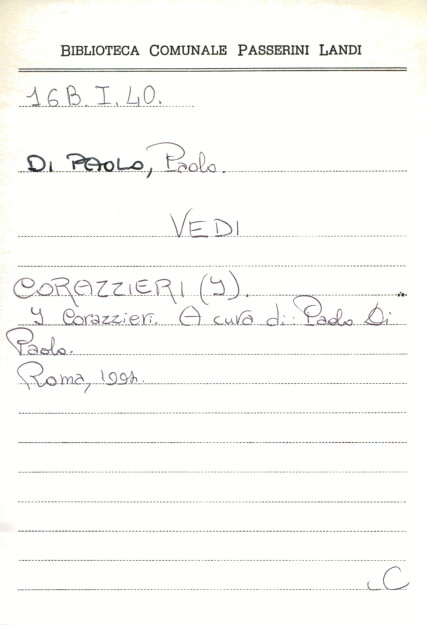 BIBLIOTECA COMUNALE PASSERINI LANDI
16B.I.40.
DI PAOLO, Paolo.
VEDI
CORAZZIERI (I).
I Corazzieri. A cura di: Paolo Di
Paolo.
Roma,
C